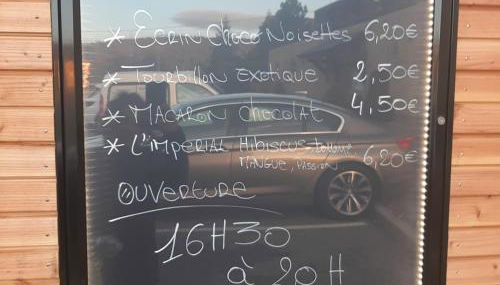 * Ecrin Choco Noisettes 6,20€
* Tourbillon exotique 2,50€
* Macaron chocolat 4,50€
* L'imperial Hibiscus- 6,20€
Mangue, Passion
OUVERTURE
16H30
à 20H